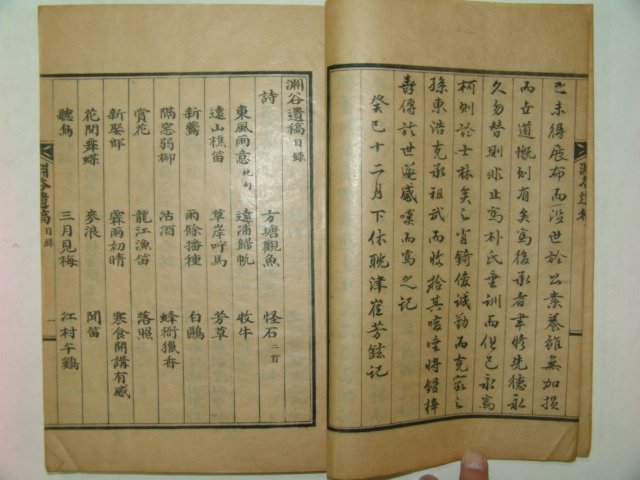 之未得展布而沒世於公素養雖無加損
而士道慨則有矣寫後承者聿修先德永
久勿替則非止寫朴氏垂訓而但已永寫
柯則於士林矣之肖錡俊誠勤而克家之
孫東浩克承祖武而收拾其咳唾將鋟梓
壽傳於世遂感嘆而寫之記
癸巳十二月下休眈津崔芳鉉記
淵谷遺稿
淵谷遺稿目錄
詩
東風雨意 方塘觀魚 怪石二首
遠山樵笛 遠浦歸帆 牧牛
新鶯 草岸呼馬 芳草
隔窓弱柳 雨餘播種 白鷗
賞花 沽酒 蜂衙獵香
新娶郎 龍江漁笛 落照
花間舞蝶 霖雨初晴 寒食開講有感
聽鳥 麥浪 聞笛
三月見梅 江村午鷄
淵谷遺稿 目錄 一